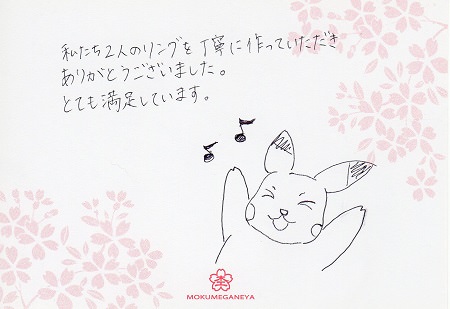 私たち2人のリングを丁寧に作っていただき
ありがとうございました。
とても満足しています。
MOKUMEGANEYA